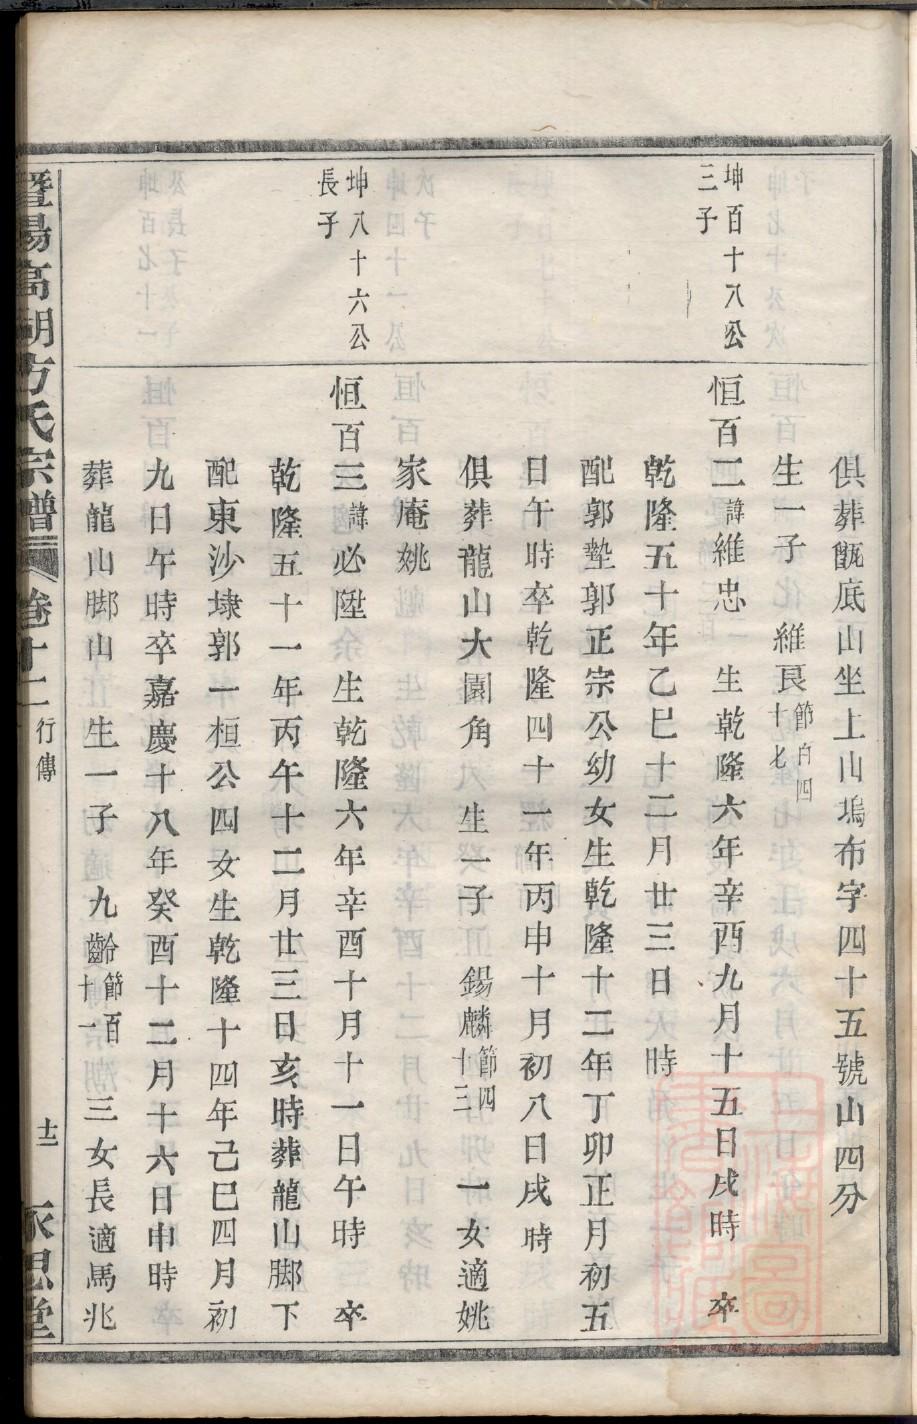 俱葬甑底山坐上山塢布字四十五號山四分
生一子 維良節百四十七
坤百十八公
三子
恒百二諱維忠 生乾隆六年辛酉九月十五日戌時 卒
乾隆五十年乙巳十二月廿三日 時
配郭墊郭正宗公幼女生乾隆十二年丁卯正月初五
日午時卒乾隆四十一年丙申十月初八日戌時
俱葬龍山大園角 生一子 錫麟節四十三 一女適姚
家庵姚
坤八十六公
長子
恒百三諱必陞 生乾隆六年辛酉十月十一日午時 卒
乾隆五十一年丙午十二月廿三日亥時葬龍山脚下
配東沙埭郭一桓公四女生乾隆十四年己巳四月初
九日午時卒嘉慶十八年癸酉十二月十六日申時
葬龍山脚山 生一子 九齡節百十一 三女長適馬兆
暨陽高湖方氏宗譜 卷十二 行傳 十二 永思堂